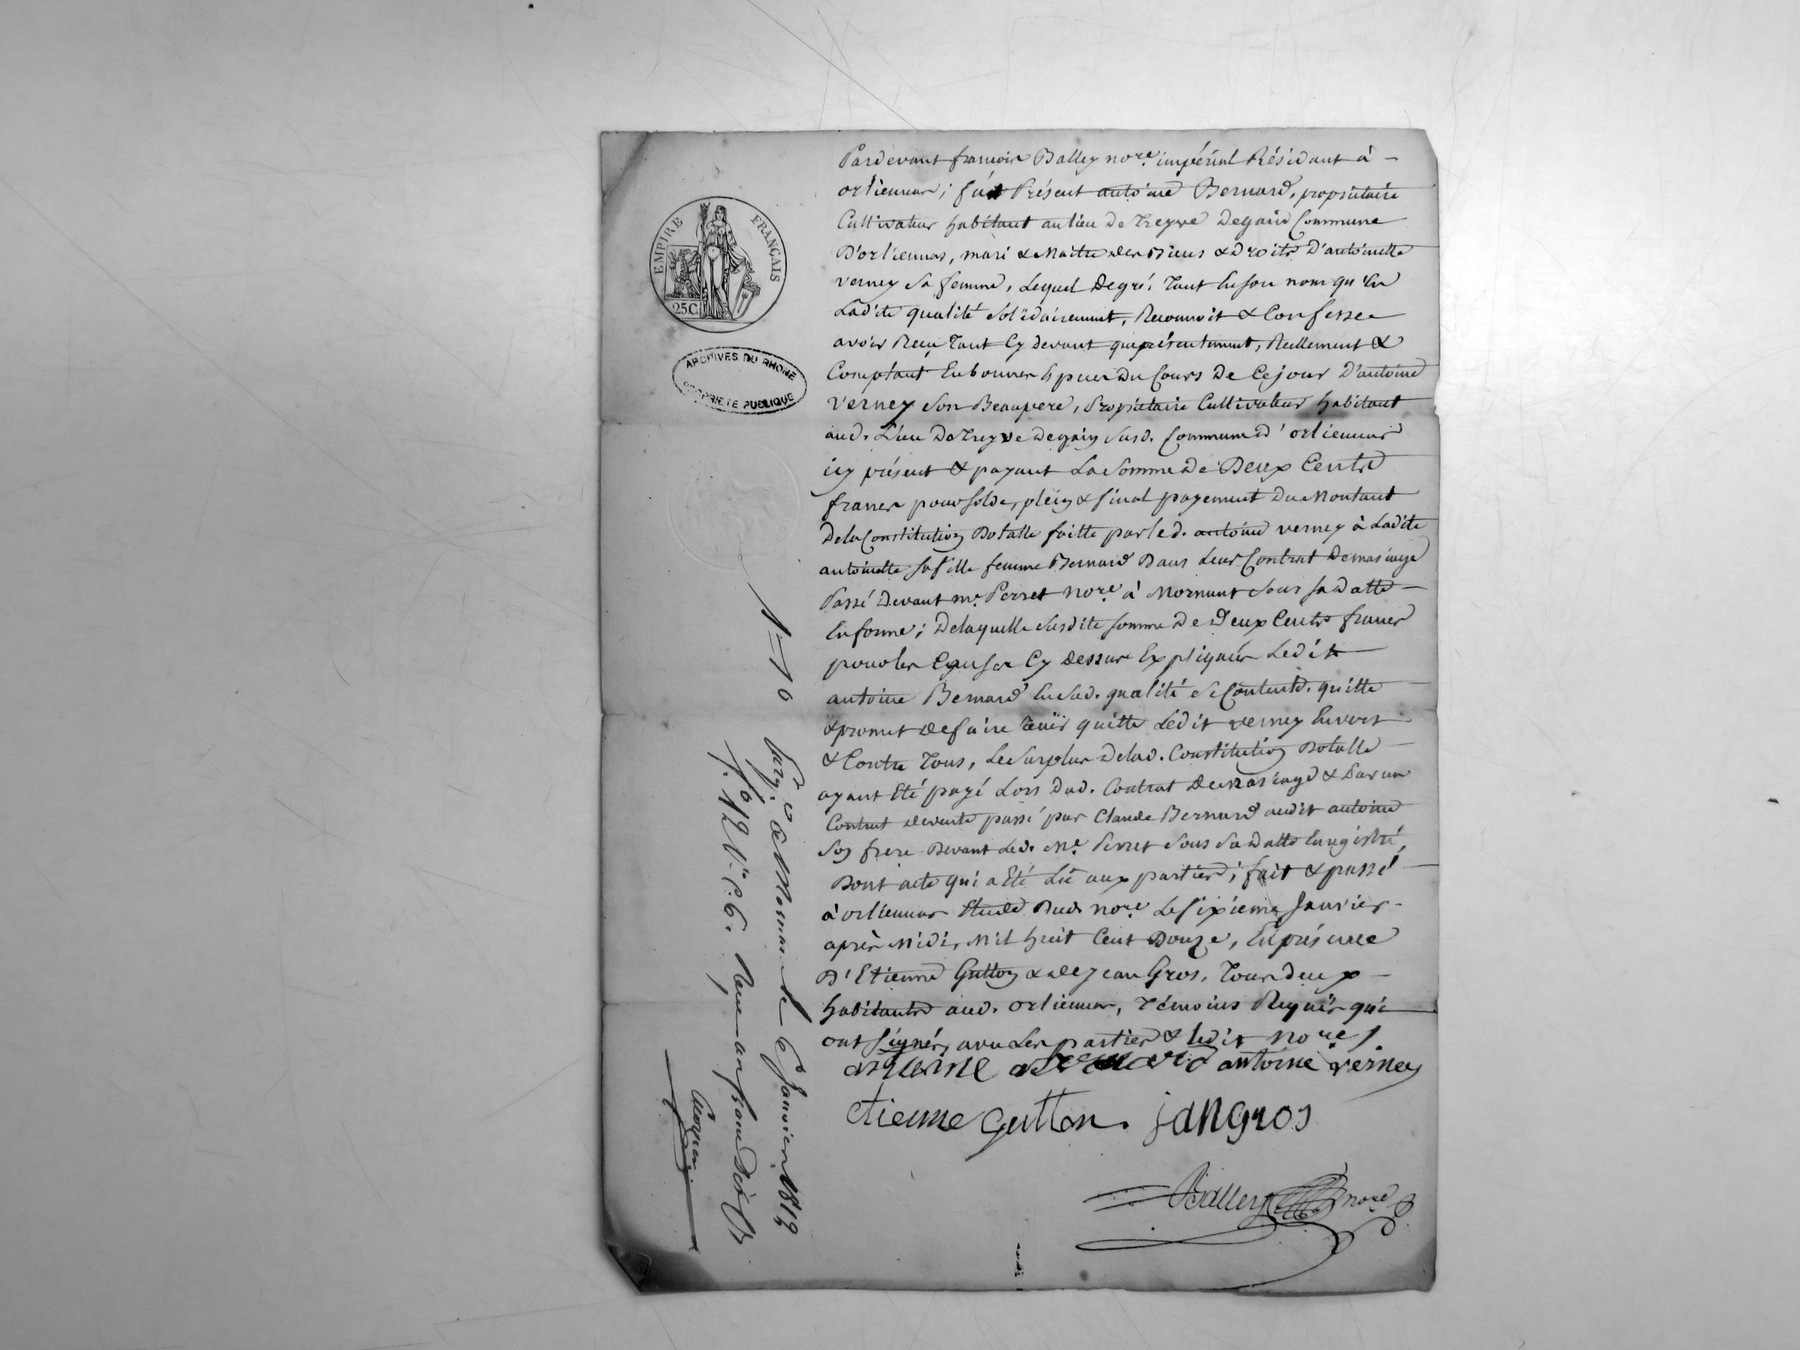 EMPIRE FRANÇAIS
25C.
ARCHIVES DU RHONE
PROPRIETE PUBLIQUE
Pardevant françois Balley no.re impérial Résidant à
orliennas; fût Présent antoine Bernard, propriétaire
Cultivateur habitant au lieu de Treyve degain Commune
D'orliennas, mari & Maitre des Biens & droits D'antoinette
verney sa femme, Lequel Degré, Tant En son nom qu'En
Ladite qualité solidairement, Reconnoit & Confesse
avoir Reçu Tant Cy devant que présentement, Réellement &
Comptant En bonnes Espèces Du Cours De Ce jour D'antoine
verney son Beaupere, Propriétaire Cultivateur habitant
aud. Lieu De Treyve Degain susd. Commune d'orliennas
icy présent & payant La somme De Deux Cents
francs pour solde, plein & final payement Du Montant
De la Constitution Dotalle faitte par led. antoine verney à Ladite
antoinette sa fille femme Bernard Dans Leur Contrat De mariage
Passé Devant m.e Perret No.re à Mornant sous sa Datte
En forme; De laquelle susdite somme De Deux Cents francs
pour les Causes Cy Dessus Expliquées Ledit
antoine Bernard En sad. qualité se Contente, quitte
& promet De faire Tenir quitte Ledit verney Envers
& Contre Tous, Le surplus De lad. Constitution Dotalle
ayant Eté payé Lors Dud. Contrat De Mariage & Par un
Contrat De vente passé par Claude Bernard audit antoine
son frere Devant Led. M.e Perret sous sa Datte Enregistré,
Dont acte qui a Eté Lû aux parties; fait & passé
à orliennas Etude Dud. No.re Le sixieme Janvier
après Midi, Mil huit Cent Douze, En présence
D'Etienne Gutton & de Jean Gros, Tous deux
habitants aud. orliennas, Témoins Requis qui
ont signé, avec Les parties & ledit No.re
antoine Bernard antoine verney
etienne Gutton. jangros
Balley no.re
1=10
Enrg.é à Mornant le 6 Janvier 1812
f.o 12 v.o c. 6. Reçu un franc dix c.